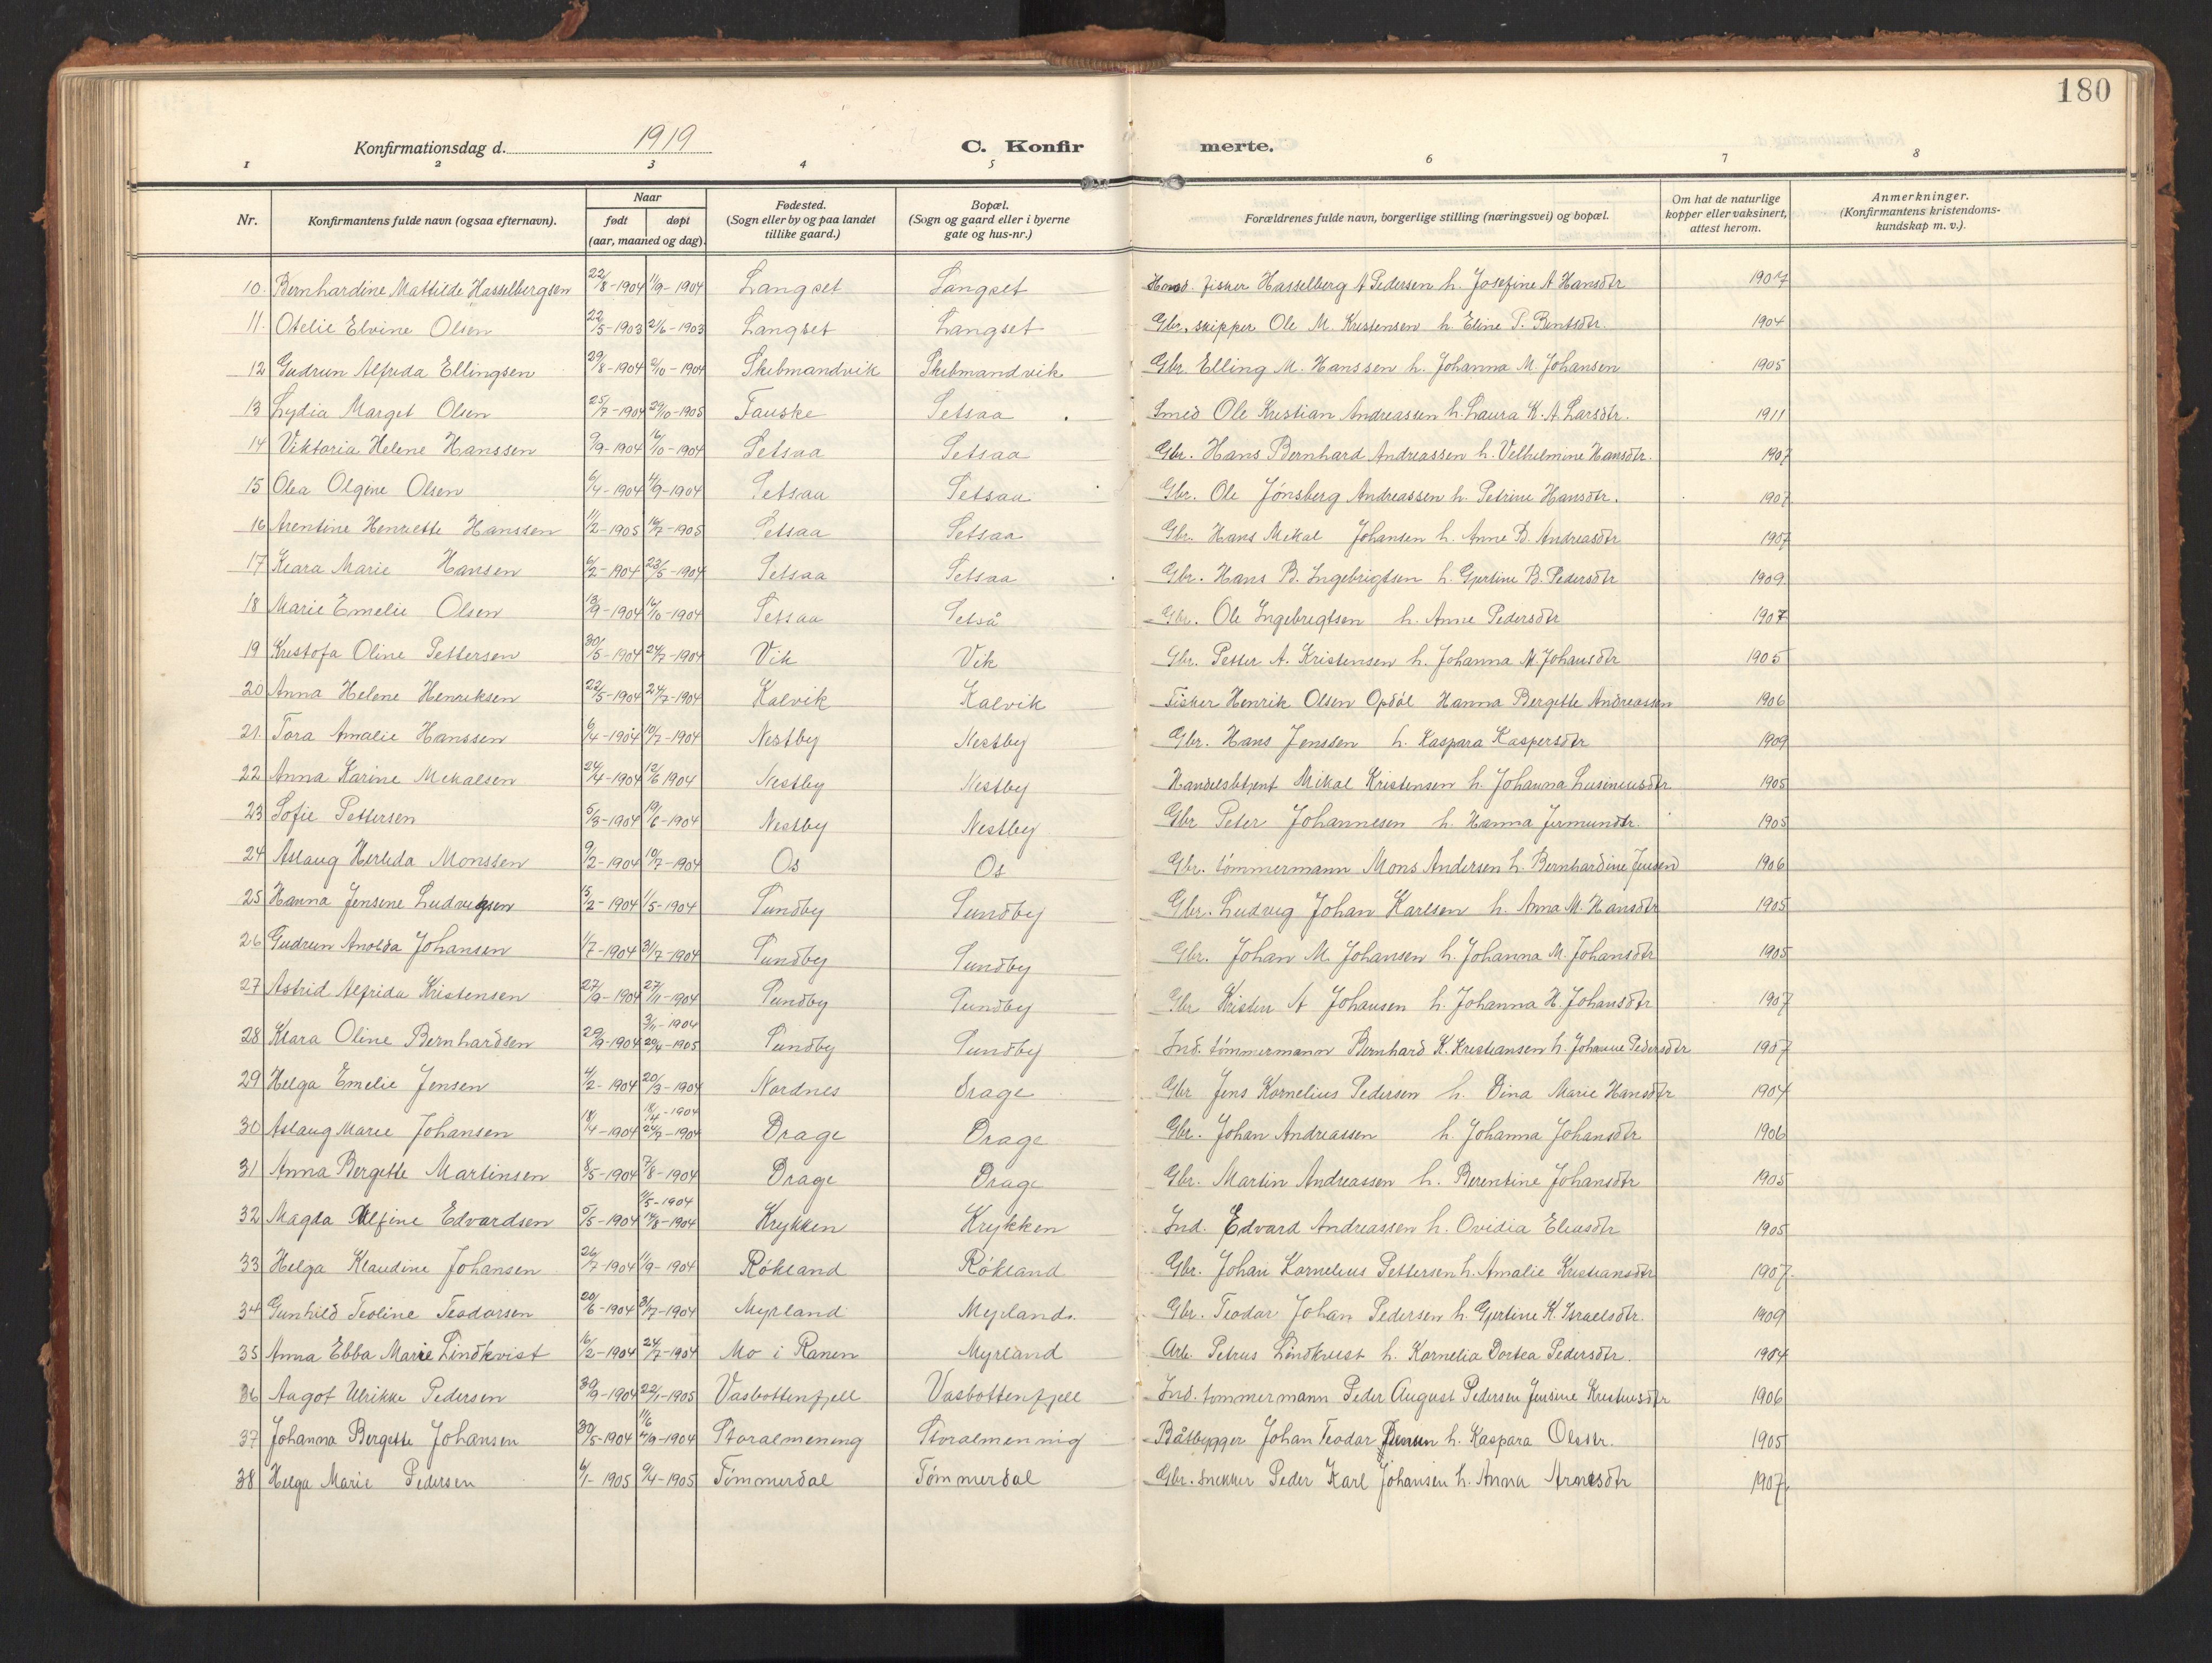 180
Konfirmationsdag d. 1919 C. Konfirmerte.
1 2 3 4 5 6 7 8
Nr. Konfirmantens fulde navn (ogsaa efternavn). Naar født døpt (aar, maaned og dag). Fødested. (Sogn eller by og paa landet tillike gaard.) Bopæl. (Sogn og gaard eller i byerne gate og hus-nr.) Forældrenes fulde navn, borgerlige stilling (næringsvei) og bopæl. Om hat de naturlige kopper eller vaksinert, attest herom. Anmerkninger. (Konfirmantens kristendoms-kundskap m. v.).
10. Bernhardine Mathilde Hasselbergsen 22/8-1904 11/9-1904 Langset Langset fisker Hasselberg A Pedersen h. Josefine A Hansdtr 1907
11. Otelie Elvine Olsen 22/5-1903 21/6-1903 Langset Langset Gbr. skipper Ole M. Kristensen h. Eline P. Bentsdtr. 1904
12 Gudrun Alfrida Ellingsen 29/8-1904 9/10-1904 Skibmandvik Skibmandvik Gbr. Elling M. Hanssen h. Johanna M. Johansen 1905
13 Lydia Marget Olsen 25/7-1904 29/10-1905 Fauske Setsaa Smed Ole Kristian Andreassen h. Laura K. A. Larsdtr. 1911
14 Viktoria Helene Hanssen 9/9-1904 16/10-1904 Setsaa Setsaa Gbr. Hans Bernhard Andreassen h. Velhelmine Hansdtr. 1907
15 Olea Olgine Olsen 6/4-1904 4/9-1904 Setsaa Setsaa Gbr. Ole Jønsberg Andreassen h. Petrine Hansdtr. 1907
16 Arentine Henriette Hanssen 11/2-1905 16/7-1905 Setsaa Setsaa Gbr. Hans Mikal Johansen h. Anne B. Andreasdtr 1907
17 Klara Marie Hansen 6/2-1904 23/5-1904 Setsaa Setsaa Gbr. Hans B. Ingebrigtsen h. Gjertine B. Pedersdtr 1909
18 Marie Emelie Olsen 13/9-1904 16/10-1904 Setsaa Setså Gbr. Ole Ingebregtsen h. Anne Pedersdtr 1907
19 Kristofa Oline Pettersen 30/5-1904 24/7-1904 Vik Vik Gbr. Petter A. Kristensen h. Johanna N. Johansdtr 1905
20 Anna Helene Henriksen 22/5-1904 24/7-1904 Kalvik Kalvik Fisker Henrik Olsen Opdøl Hanna Bergette Andreassen 1906
21. Tora Amalie Hanssen 6/4-1904 10/7-1904 Nestby Nestby Gbr. Hans Jenssen h. Kaspara Kaspersdtr 1909
22 Anna Karine Mikalsen 24/4-1904 12/6 1904 Nestby Nestby Handelsbetjent Mikal Kristensen h. Johanna 1905
23 Sofie Pettersen 5/3-1904 19/6-1904 Nestby Nestby Gbr Peter Johannesen h. Hanna Jermundtr. 1905
24 Aslaug Herlida Monssen 9/2-1904 10/7-1904 Os Os Gbr. tømmermann Mons Andersen h. Bernhardine Jensen 1906
25 Hanna Jensine Ludvigsen 15/2-1904 1/5-1904 Sundby Sundby Gbr. Ludvig Johan Karlsen h. Anna M. Hansdtr 1905
26 Gudrun Anolda Johansen 1/7-1904 31/7-1904 Sundby Sundby Gbr. Johan M. Johansen h. Johanna M. Johansdtr 1905
27 Astrid Alfrida Kristensen 27/9-1904 27/11-1904 Sundby Sundby Gbr Kristen A Johansen h. Johanna H. Johansdtr 1907
28 Klara Oline Bernhardsen 29/9-1904 3/11-1904 20/4-1905 Sundby Sundby Ind. tømmermann Bernhard K. Kristiansen h. Johanne Pedersdtr 1907
29 Helga Emelie Jensen 4/2-1904 20/3-1904 Nordnes Drage Gbr Jens Kornelius Pedersen h. Dina Marie Hansdtr 1904
30 Aslaug Marie Johansen 18/4-1904 18/4-1904 24/7-1904 Drage Drage Gbr. Johan Andreassen h. Johanna Johansdtr 1906
31 Anna Bergette Martinsen 8/5-1904 7/8-1904 Drage Drage Gbr. Martin Andreassen h. Berentine Johansdtr 1905
32 Magda Alfine Edvardsen 5/5-1904 11/5-1904 14/8-1904 Krykken Krykken Ind. Edvard Andreassen h. Ovidia Eliasdtr 1905
33 Helga Klaudine Johansen 26/7-1904 11/9-1904 Røkland Røkland Gbr. Johan Kornelius Pettersen h. Amalie Kristiansdtr 1907.
34 Gunhild Teoline Teodorsen 20/6-1904 31/7-1904 Myrland Myrland. Gbr. Teodor Johan Pedersen h. Gjertine K. Israelsdtr. 1909
35 Anna Ebba Marie Lindkvist 16/2-1904 24/7-1904 Mo i Ranen Myrland Arb. Petrus Lindkvist h. Kornelia Dortea Pedersdtr. 1904
36 Aagot Ulrikke Pedersen 30/9-1904 22/1-1905 Vasbottenfjell Vasbottenfjell Ind. tømmermann Peder August Pedersen Jensine Kristensdtr 1906
37 Johanna Bergette Johansen 30/5-1904 11/6 4/9-1904 Storalmening Storalmennig Båtbygger Johan Teodor Jensen h. Kaspara Olsdtr. 1905
38 Helga Marie Pedersen 6/1-1905 9/4-1905 Tømmerdal Tømmerdal Gbr. snekker Peder Karl Johansen h. Anna Arnesdtr 1907.